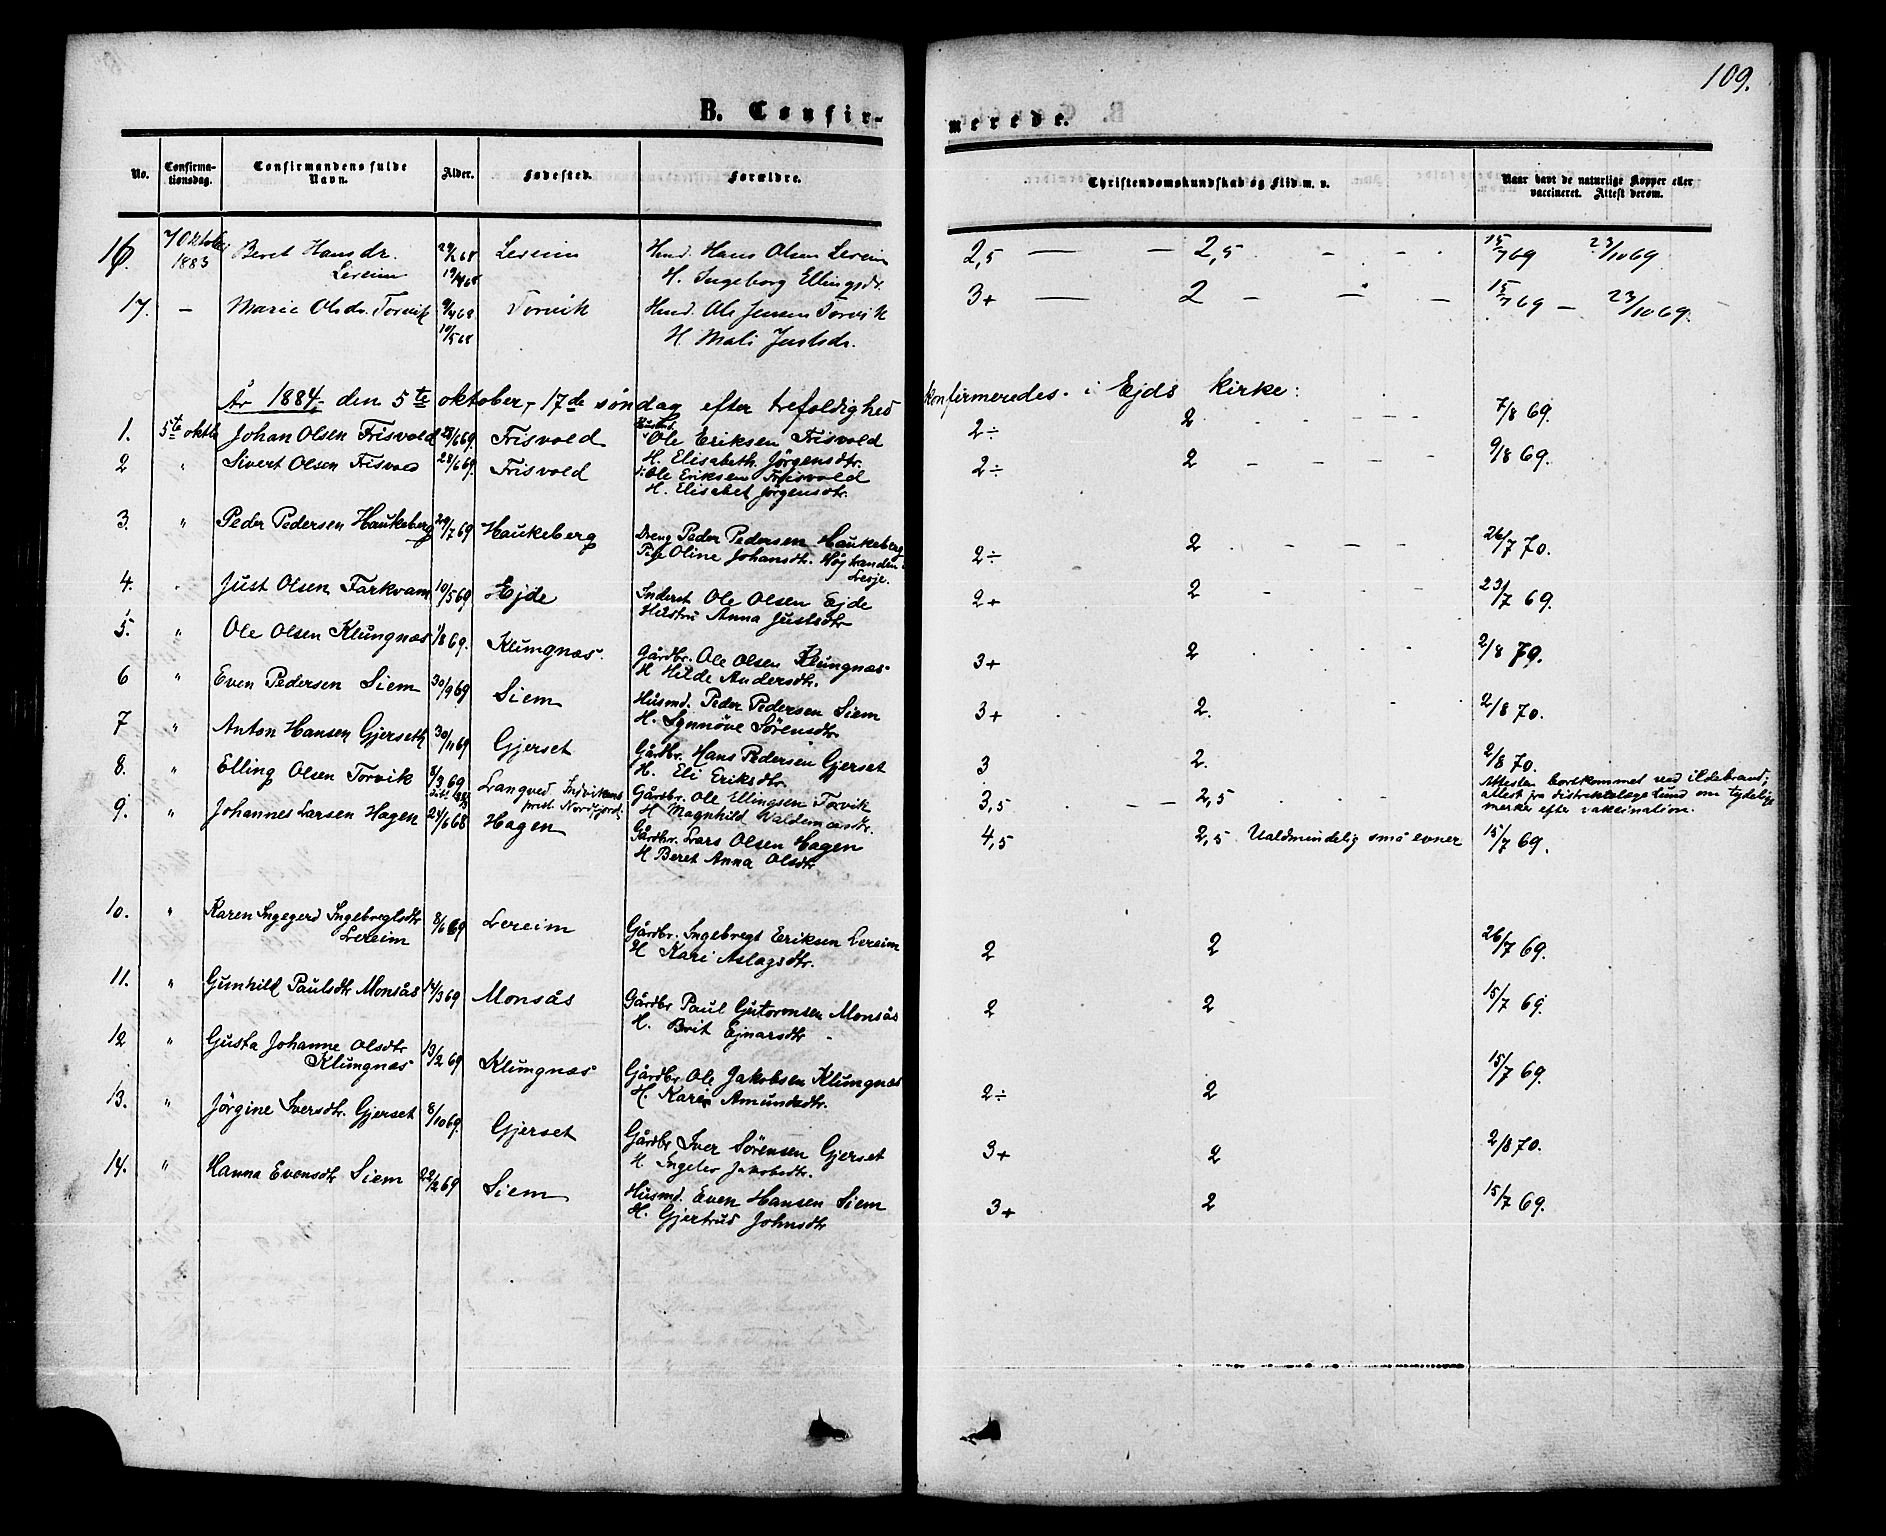 109.
B. Confirmerede.
No. Confirmationsdag. Confirmandens fulde Navn. Alder. Fødested. Forældre. Christendomskundskab og Flid m. v. Naar havt de naturlige Kopper eller vaccineret. Attest derom.
16. 7 Oktober 1883 Beret Hansdr. Lereim Lereim Husmd. Hans Olsen Lereim 2,5 — — 2,5 15/7 69 23/10 69
H. Ingeborg Ellingsdr.
17. — Marie Olsdr. Torvik 9/4 68 10/5 68 Torvik Husmd. Ole Jensen Torvik 3+ — 2 — — — 15/7 69 — 23/10 69.
H. Mali Justsdr.
År 1884, den 5te oktober, 17de søndag efter trefoldighed konfirmeredes i Ejds kirke:
1. 5te oktb Johan Olsen Frisvold 28/6 69. Frisvold Husmd. Ole Eriksen Frisvold 2÷ 2 7/8 69.
H. Elisabeth Jörgensdtr.
2 " Sivert Olsen Frisvold 28/6 69. Frisvold Ole Eriksen Frisvold 2÷ 2 9/8 69.
H. Elisabet Jörgensdtr.
3. " Peder Pedersen Haukeberg 29/7 69 Haukeberg Dreng Peder Pedersen Haukeberg 2÷ 2 26/7 70.
Pige Oline Johansdtr. Lesje.
4. " Just Olsen Farkvam 10/5 69 Ejde Inderst Ole Olsen Ejde 2+ 2 23/7 69.
Hustru Anna Justsdtr
5. " Ole Olsen Klungnæs 1/8 69. Klungnæs. Gårdbr. Ole Olsen Klungnæs 3+ 2 2/8 70.
H Hilde Andersdtr.
6 " Even Pedersen Siem 30/9 69 Siem Husmd. Peder Pedersen Siem 3+ 2. 2/8 70.
H. Synnöve Sörensdtr.
7 " Anton Hansen Gjerseth 30/11 69 Gjerset Gårdbr. Hans Pedersen Gjerset 3 2. 2/8 70.
H. Eli Eriksdtr
8. " Elling Olsen Torvik 8/3 69 Langved Indvikens prest. Nordfjord. Gårdbr. Ole Ellingsen Torvik 3,5 2,5 Attesten bortkommet ved ildebrand;
attest fra distriktslæge Lund om tydelige
merker efter vakcination.
H Magnhild Waldemarsdtr.
9. " Johannes Larsen Hagen 24/6 68 Hagen Gårdbr. Lars Olsen Hagen 4,5 2,5 Ualdmindelig små evner 15/7 69.
H Beret Anna Olsdtr
10. " Karen Ingegerd Ingebregtsdtr Lereim 8/6 69 Lereim Gårdbr. Ingebregt Eriksen Lereim 2 2 26/7 69.
H Kari Aslagsdtr.
11. " Gunhild Paulsdtr Monsås 14/3 69 Monsås Gårdbr Paul Gutormsen Monsås 2 2 15/7 69.
H. Brit Ejnarsdtr
12 " Gusta Johanne Olsdtr Klungnæs 13/2 69 Klungnæs Gårdbr Ole Jakobsen Klungnæs 2÷ 2 15/7 69.
H. Karen Amundsdtr.
13. " Jörgine Iversdtr. Gjerset 8/10 69. Gjerset Gårdbr Iver Sörensen Gjerset 3+ 2 2/8 70.
H. Ingelev Jakobsdtr.
14. " Hanna Evensdtr Siem 22/2 69 Siem Husmd. Even Hansen Siem 3+ 2 15/7 69.
H. Gjertrud Johnsdtr